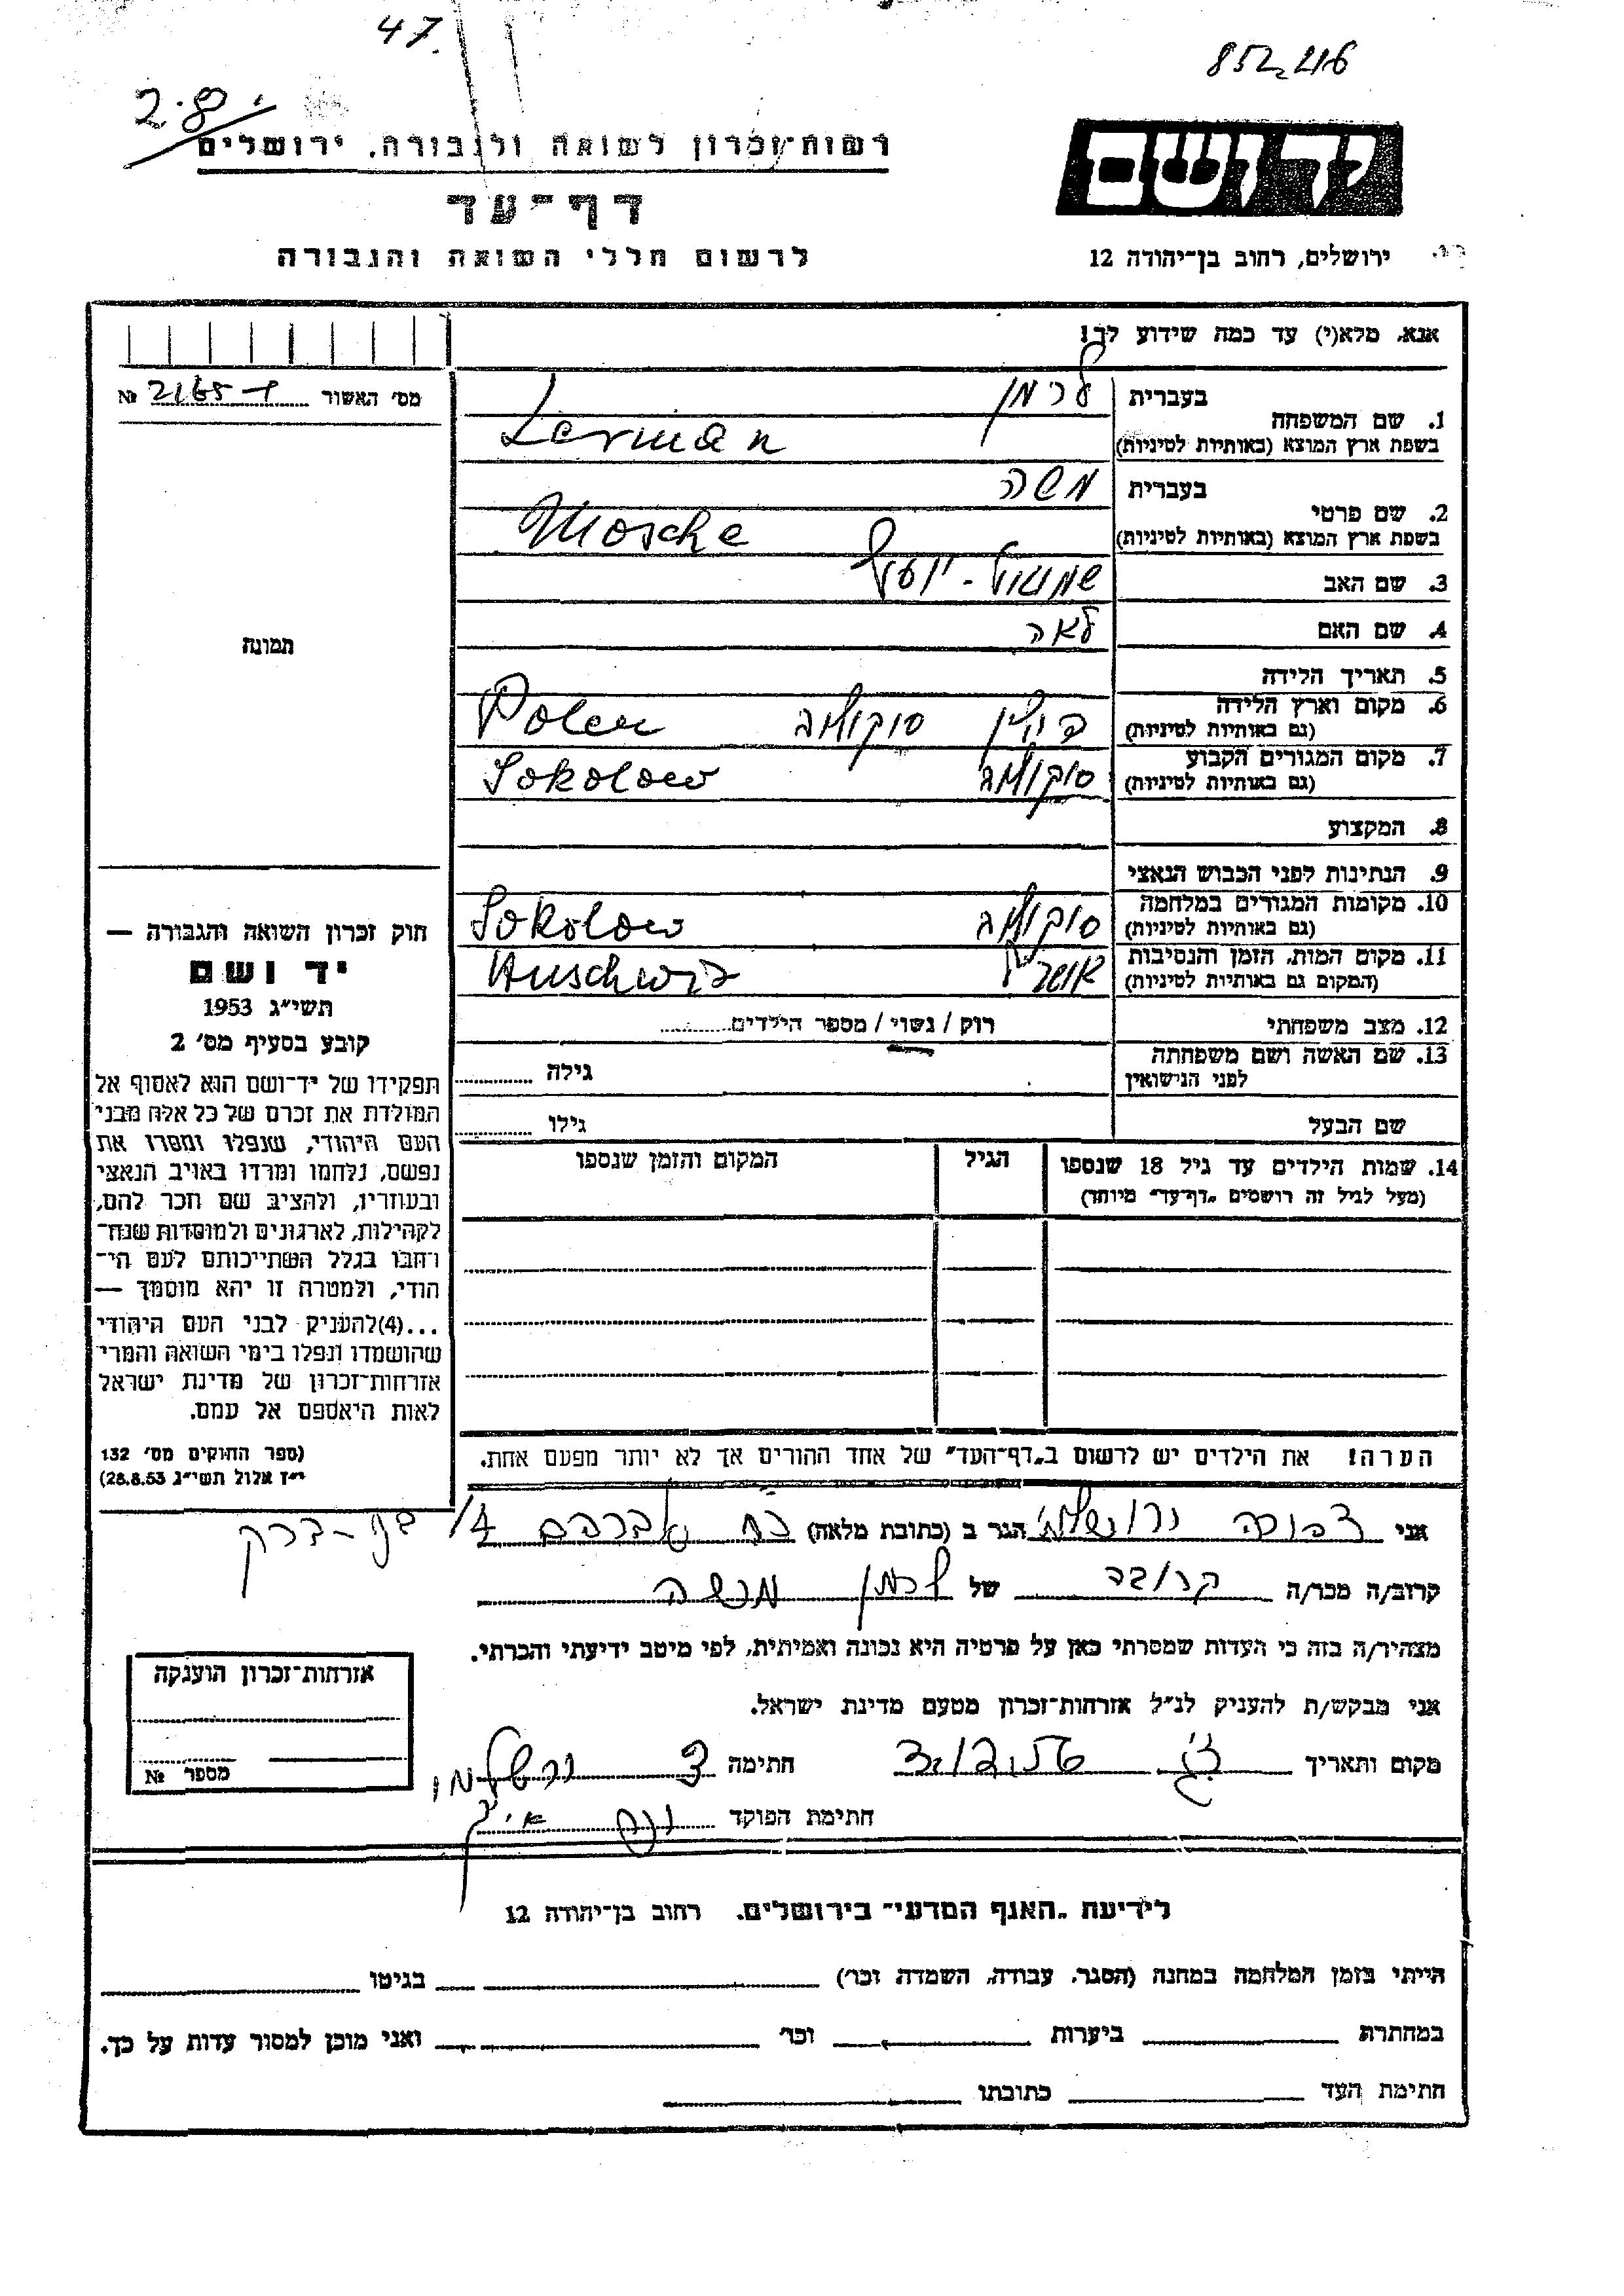 47.
852,216
2.8.
רשות-זכרון לשואה ולגבורה, ירושלים
יד ושם
דף-עד
לרשום חללי השואה והגבורה
ירושלים, רחוב בן-יהודה 12
אנא, מלא(י) עד כמה שידוע לך!
מס׳ האשור №
1. שם המשפחה בעברית לרמן
בשפת ארץ המוצא (באותיות לטיניות) Lerman
2. שם פרטי בעברית משה
בשפת ארץ המוצא (באותיות לטיניות) Mosche
3. שם האב שמואל-יוסף
4. שם האם לאה
תמונה
5. תאריך הלידה
6. מקום וארץ הלידה (גם באותיות לטיניות) פולין סוקולוב Polen
7. מקום המגורים הקבוע (גם באותיות לטיניות) סוקולוב Sokolow
8. המקצוע
9. הנתינות לפני הכבוש הנאצי
10. מקומות המגורים במלחמה (גם באותיות לטיניות) סוקולוב Sokolow
11. מקום המות, הזמן והנסיבות (המקום גם באותיות לטיניות) Auschwiz
12. מצב משפחתי רוק / נשוי / מספר הילדים
13. שם האשה ושם משפחתה לפני הנישואין גילה
שם הבעל גילו
14. שמות הילדים עד גיל 18 שנספו הגיל המקום והזמן שנספו
(מעל לגיל זה רושמים „דף-עד״ מיוחד)
חוק זכרון השואה והגבורה —
יד ושם
תשי״ג 1953
קובע בסעיף מס׳ 2
תפקידו של יד-ושם הוא לאסוף אל
המולדת את זכרם של כל אלה מבני
העם היהודי, שנפלו ומסרו את
נפשם, נלחמו ומרדו באויב הנאצי
ובעוזריו, ולהציב שם וזכר להם,
לקהילות, לארגונים ולמוסדות שנח-
רבו בגלל השתייכותם לעם הי-
הודי, ולמטרה זו יהא מוסמך —
...(4) להעניק לבני העם היהודי
שהושמדו ונפלו בימי השואה והמרי
אזרחות-זכרון של מדינת ישראל
לאות היאספם אל עמם.
(ספר החוקים מס׳ 132
י״ז אלול תשי״ג 28.8.53)
הערה! את הילדים יש לרשום ב„דף-העד״ של אחד ההורים אך לא יותר מפעם אחת.
אני דבורה ירושלמי הגר ב (כתובת מלאה)
קרוב/ה מכר/ה קרובה של לרמן משה
מצהיר/ה בזה כי העדות שמסרתי כאן על פרטיה היא נכונה ואמיתית, לפי מיטב ידיעתי והכרתי.
אני מבקש/ת להעניק לנ״ל אזרחות-זכרון מטעם מדינת ישראל.
מקום ותאריך חתימה ד ירושלמי
חתימת הפוקד
אזרחות-זכרון הוענקה
מספר №
לידיעת „האגף המדעי״ בירושלים, רחוב בן-יהודה 12
הייתי בזמן המלחמה במחנה (הסגר, עבודה, השמדה וכו׳) בגיטו
במחתרת ביערות וכו׳ ואני מוכן למסור עדות על כך.
חתימת העד כתובתו